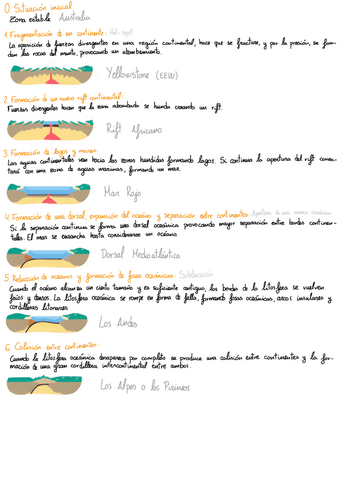 0. Situación inicial
Zona estable Australia
1. Fragmentación de un continente: Hot-spot
La aparición de fuerzas divergentes en una región continental, hace que se fracture, y por la presión, se fun-
dan las rocas del manto, provocando un abombamiento.
Yellowstone (EEUU)
2. Formación de un nuevo rift continental:
Fuerzas divergentes hacen que la zona abombada se hunda creando un rift.
Rift Africano
3. Formación de lagos y mares:
Las aguas continentales van hacia las zonas hundidas formando lagos. Si continua la apertura del rift conec-
tará con una zona de aguas marinas, formando un mar.
Mar Rojo
4. Formación de una dorsal, expansión del océano y separación entre continentes: Apertura de una cuenca oceánica
Si la separación continua se forma una dorsal oceánica provocando mayor separación entre bordes continen-
tales. El mar se ensancha hasta considerarse un océano.
Dorsal Medioatlántica
5. Reducción de océanos y formación de fosas oceánicas: Subducción
Cuando el océano alcanza un cierto tamaño y es suficiente antiguo, los bordes de la litosfera se vuelven
fríos y densos. La litosfera oceánica se rompe en forma de falla, formando fosas oceánicas, arcos insulares y
cordilleras litorales.
Los Andes
6. Colisión entre continentes:
Cuando la litosfera oceánica desaparece por completo se produce una colisión entre continentes y la for-
mación de una gran cordillera intercontinental entre ambos.
Los Alpes o los Pirineos